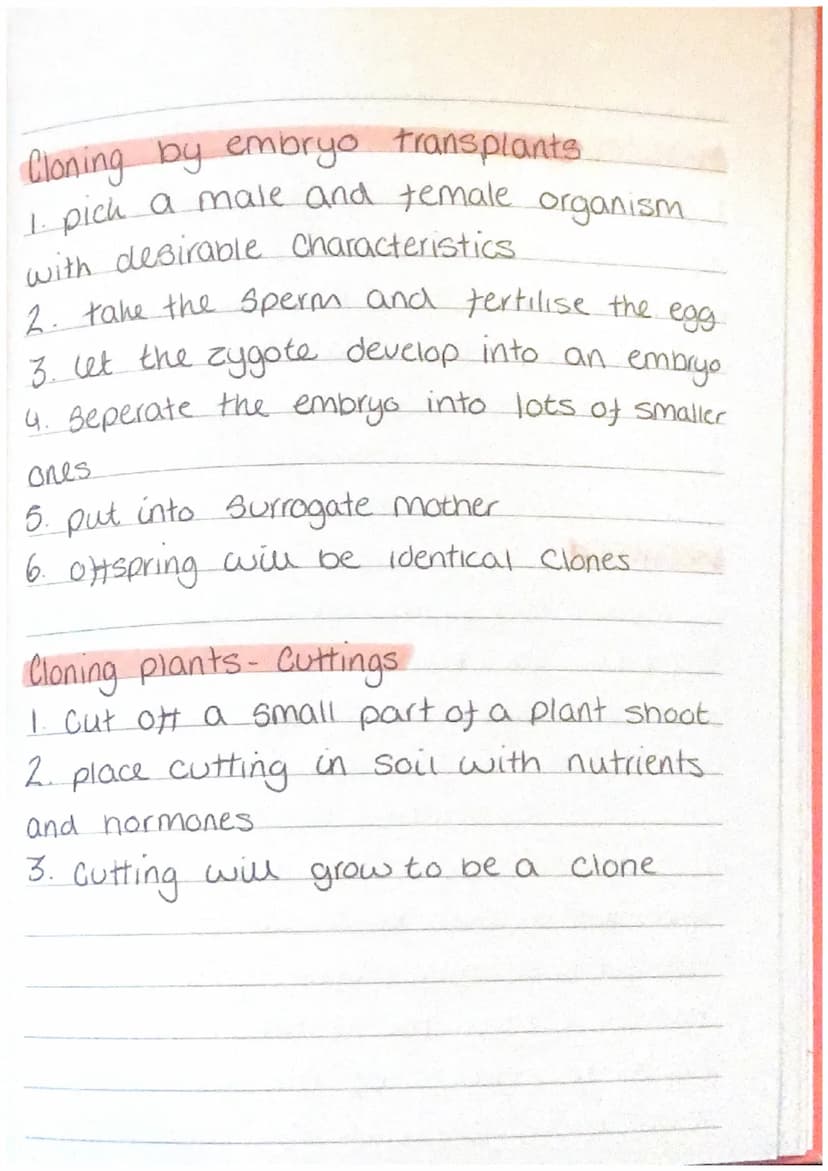 Cloning by embryo transplants
1. pick a male and female organism
with desirable characteristics
2. take the sperm and fertilise the egg
3. let the zygote develop into an embryo
4. Seperate the embryo into lots of smaller
ones
5. put into surrogate mother
6. offspring will be identical clones
Cloning plants - Cuttings
1. Cut off a small part of a plant shoot
2. place cutting in soil with nutrients
and hormones
3. Cutting will grow to be a clone